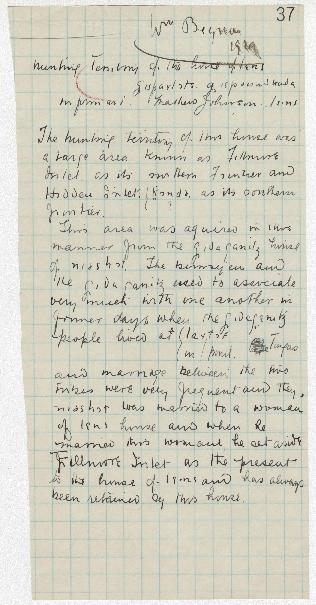 37
Wm Beynon
1949
hunting Territory of the house of lɛns
gispaxlɔ'ts
informant Matthew Johnson. lɛns
The hunting territory of this house was
a large area known as Fillmore
Inlet as its northern Frontier and
Hidden Inlet, as its southern
frontier.
This area was aquired in this
manner from the gidaganitz house
of nisshɔt. The and
the gidaganitz used to associate
very much with one another in
former days when the gidaganitz
people lived at
Tongas
and marriage between the two
tribes were very frequent and they.
nisshɔt was married to a woman
of lɛns house and when he
married this woman he set aside
Fillmore Inlet as the present
to the house of lɛns and has always
been retained by this house.